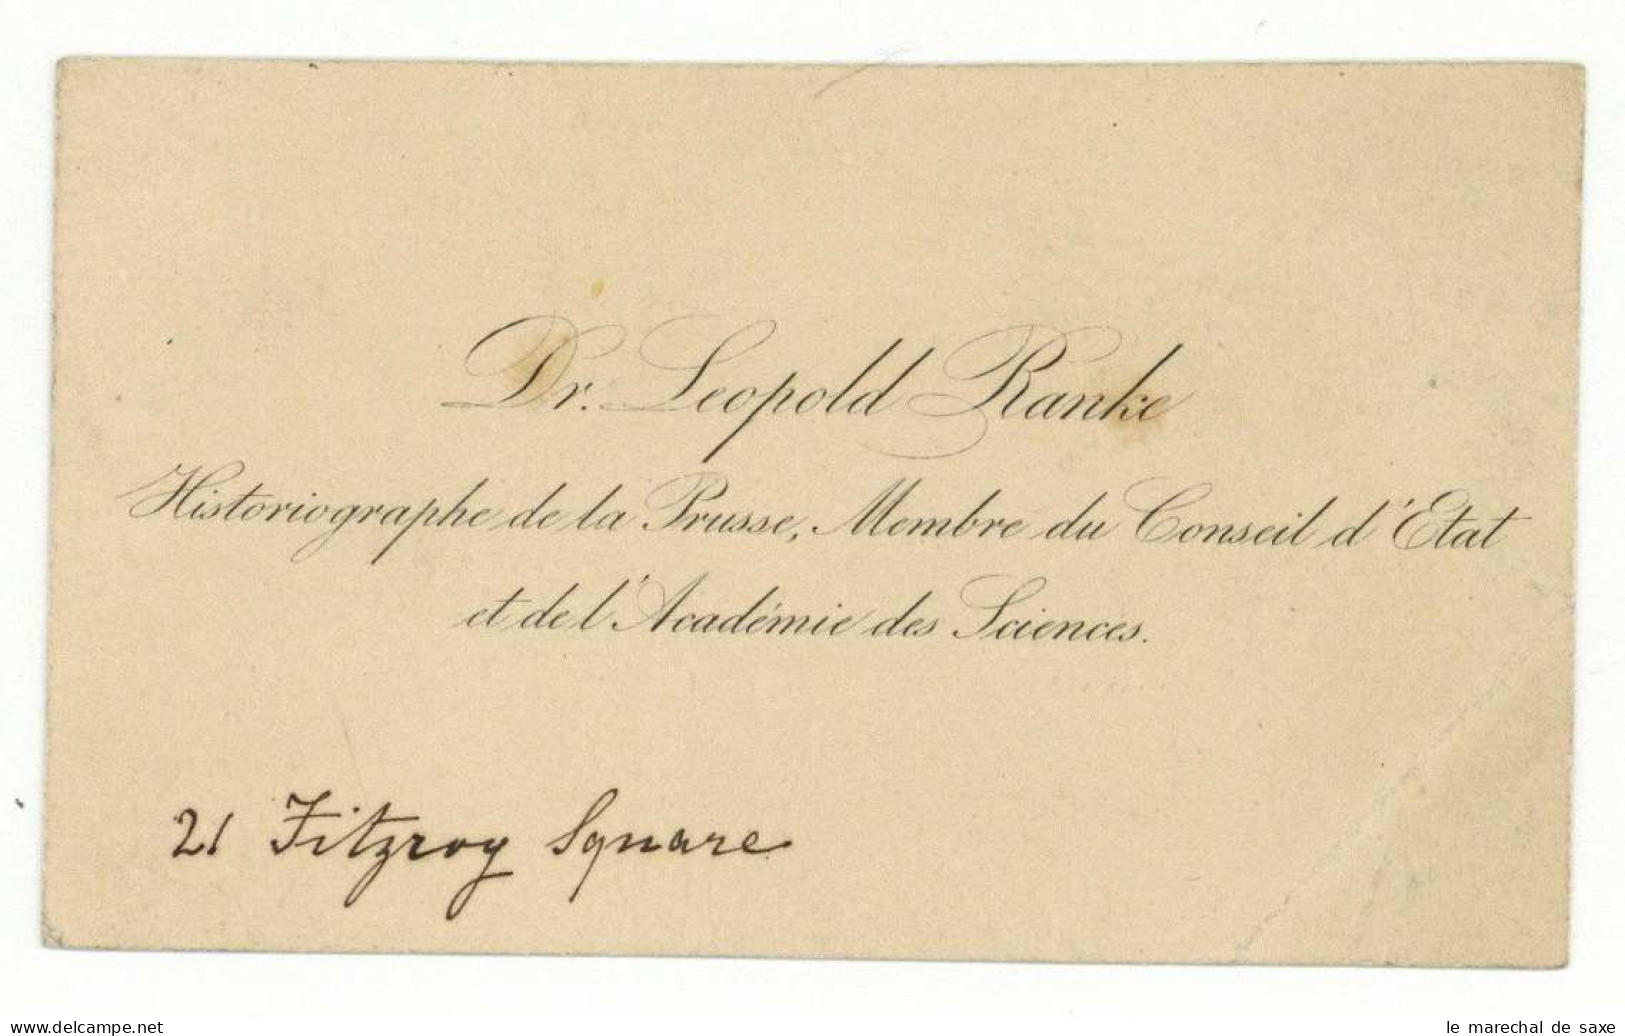 Dr. Leopold Ranke
Historiographe de la Prusse, Membre du Conseil d'Etat
et de l'Académie des Sciences.
21 Fitzroy Square
www.delcampe.net
le marechal de saxe